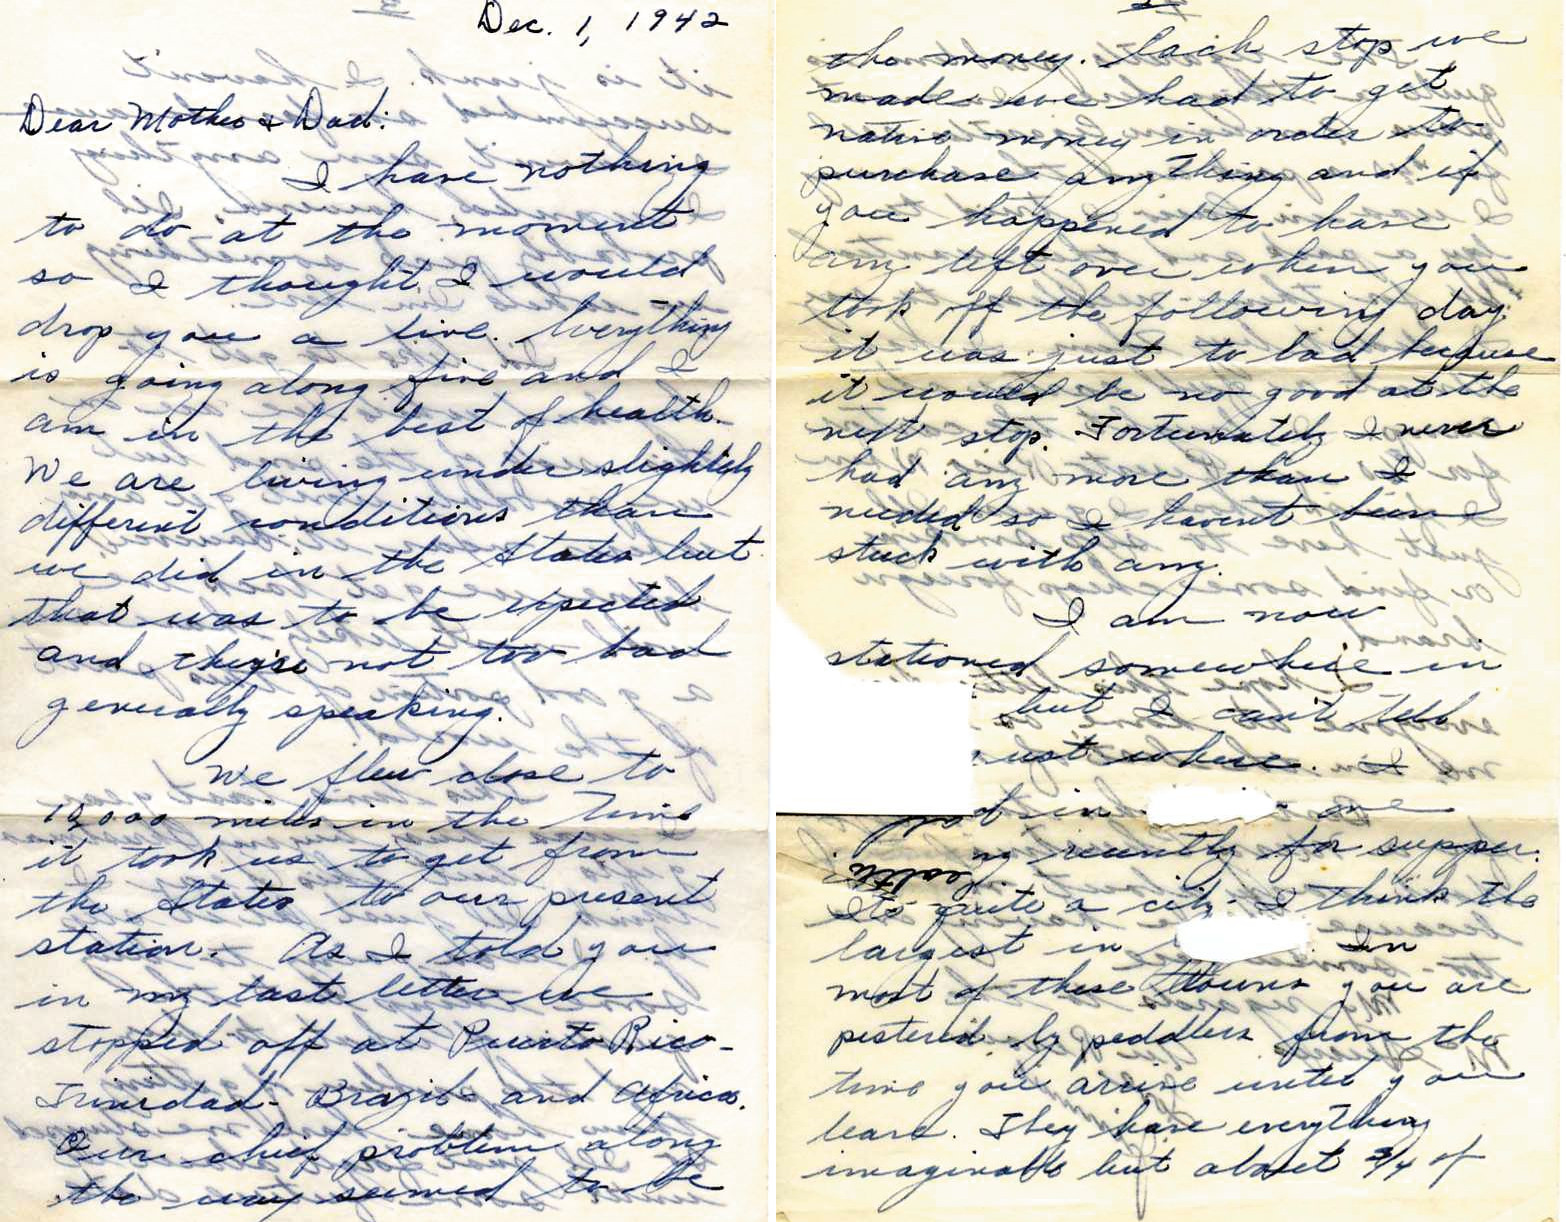 Dec. 1, 1942
Dear Mother & Dad:
I have nothing
to do at the moment
so I thought I would
drop you a line. Everything
is going along fine and I
am in the best of health.
We are living under slightly
different conditions than
we did in the States but
that was to be expected
and they're not too bad
generally speaking.
We flew close to
12,000 miles in the time
it took us to get from
the States to our present
station. As I told you
in my last letter we
stopped off at Puerto Rico-
Trinidad- Brazil- and Africa.
Our chief problem along
the way seemed to be
the money. Each stop we
made we had to get
native money in order to
purchase anything and if
you happened to have
any left over when you
took off the following day
it was just to bad because
it would be no good at the
next stop. Fortunately I never
had any more than I
needed so I havent been
stuck with any.
I am now
stationed somewhere in
but I can't tell
just where. I
in me
recently for supper.
Its quite a city- I think the
largest in . In
most of these towns you are
pestered by peddlers from the
time you arrive until you
leave. They have everything
imaginable but about 3/4 of